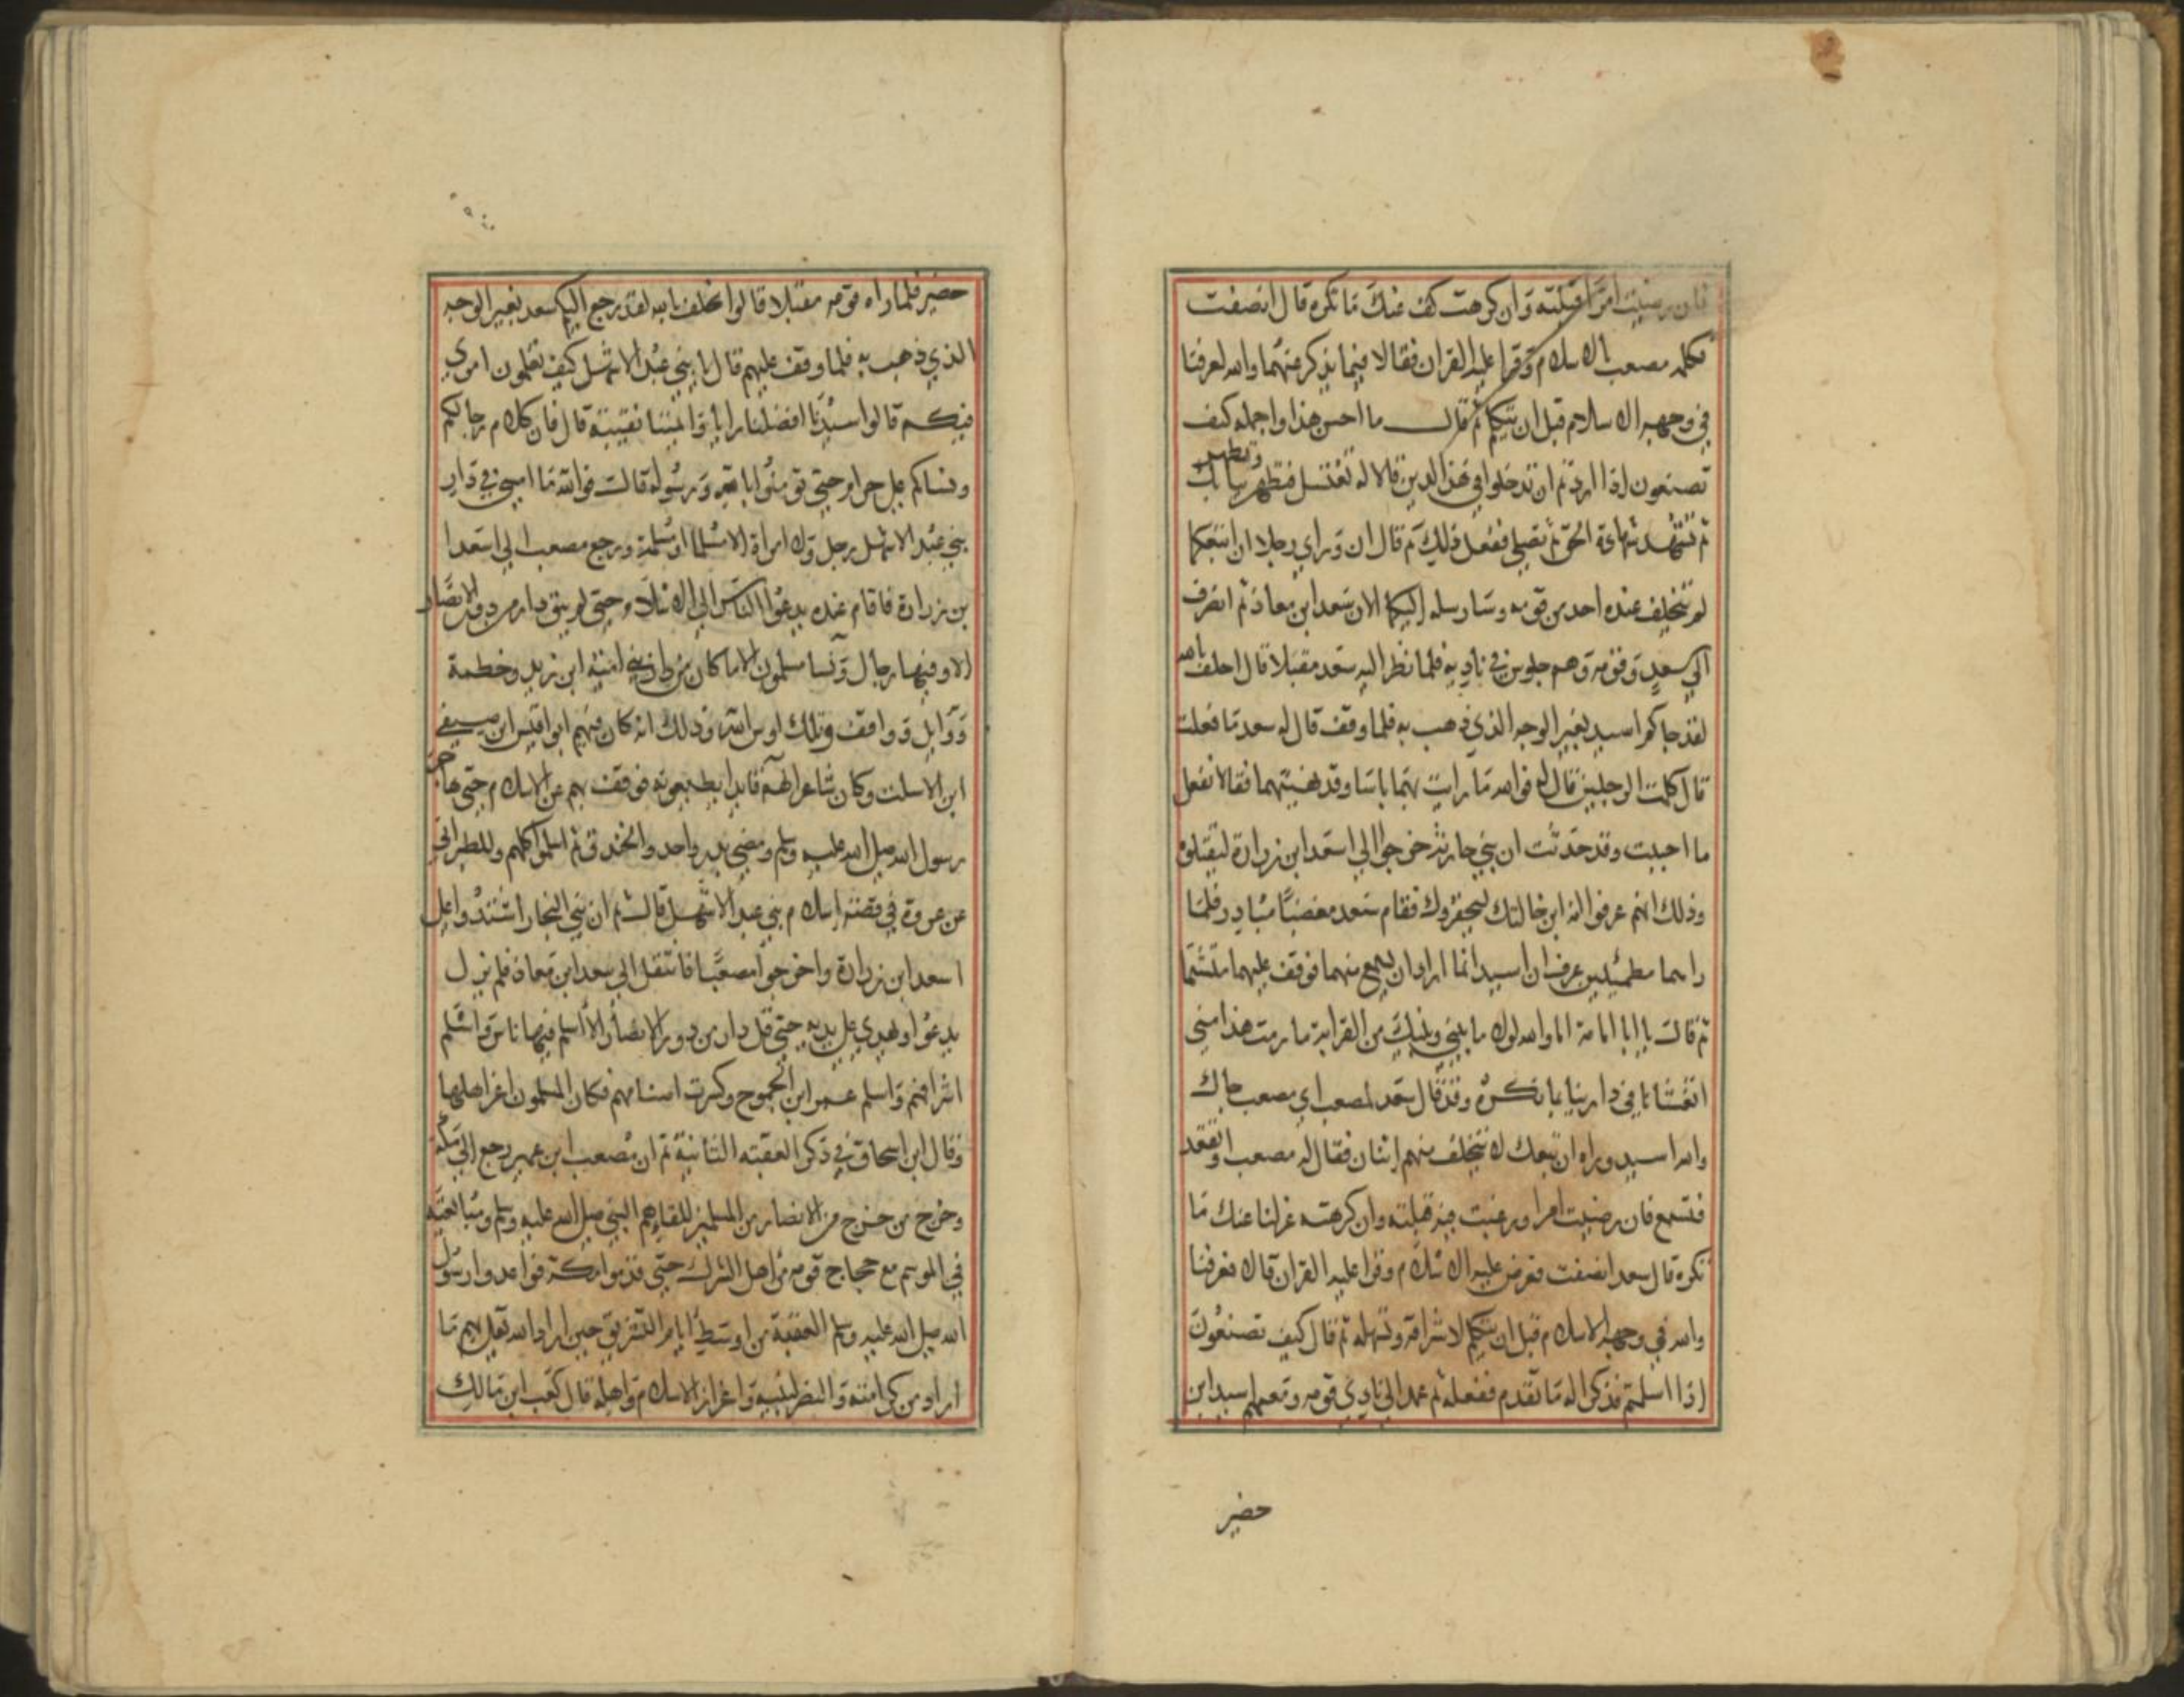 فان رضيت امرا قبلته وان كرهت كف عنك ما تكره قال انصفت
فكلمه مصعب بالاسلام وقرا عليه القران فقالا فيما يذكر عنهما والله لعرفنا
في وجهه الاسلام قبل ان يتكلم ثم قال ما احسن هذا واجمله كيف
تصنعون اذا اردتم ان تدخلوا في هذا الدين قالا له تغتسل فتطهر وتطهر ثيابك
ثم تتشهد شهادة الحق ثم تصلي ففعل ذلك ثم قال ان وراي رجلا ان اتبعكما
لم يتخلف عنده احد من قومه وسارسله اليكما الان سعد ابن معاذ ثم انصرف
الي سعد وقومه وهم جلوس في ناديه فلما نظر اليه سعد مقبلا قال احلف بالله
لقد جاكم اسيد بغير الوجه الذي ذهب به فلما وقف قال له سعد ما فعلت
قال كلمت الرجلين قال له فوالله ما رايت بهما باسا وقد نهيتهما فقالا نفعل
ما احببت وقد حدثت ان بني حارثة خرجوا الي اسعد ابن زرارة ليقتلوه
وذلك انهم عرفوا انه ابن خالتك ليحقروك فقام سعد مغضبا مبادر فلما
راهما مطمئنين عرف ان اسيد انما اراد ان يسمع منهما فوقف عليهما متشتما
ثم قال يا ابا امامة اما والله لولا ما بيني وبينك من القرابة ما رمت هذا مني
اتغشانا في دارينا بما نكره وقد قال سعد لمصعب اي مصعب جاك
والله اسيد وراه ان تبعك لا يتخلف منهم اثنان فقال له مصعب او تقعد
فتسمع فان رضيت امرا ورغبت فيه قبلته وان كرهته عزلنا عنك ما
تكره قال سعد انصفت فعرض عليه الاسلام وقرا عليه القران قال فعرفنا
والله في وجهه الاسلام قبل ان يتكلم لاشراقه وتسهله ثم قال كيف تصنعون
اذا اسلمتم فذكرا له ما تقدم ففعله ثم عمد الي نادي قومه ومعهم اسيد ابن
حضير
حضير فلما راه قومه مقبلا قالوا نحلف بالله لقد رجع اليكم سعد بغير الوجه
الذي ذهب به فلما وقف عليهم قال يا بني عبد الاشهل كيف تعلمون امري
فيكم قالوا سيدنا افضلنا رايا وايمننا نقيبة قال فان كلام رجالكم
ونساكم علي حرام حتي تومنوا بالله ورسوله قالت فوالله ما امسي في دار
بني عبد الاشهل رجل ولا امراة الا مسلما او مسلمة ورجع مصعب الي اسعد
بن زرارة فاقام عنده يدعوا الناس الي الاسلام حتي لم يبق دار من دور الانصار
الا وفيها رجال ونسا مسلمون الا ما كان من دار بني امية ابن زيد وخطمة
ووايل وواقف وتلك اوس الله وذلك انه كان فيهم ابو اقيس ابن صيفي
ابن الاسلت وكان شاعرا لهم قايدا يطيعونه فوقف بهم عن الاسلام حتي هاجر
رسول الله صلي الله عليه وسلم ومضي بدر واحد والخندق ثم اسلموا كلهم وللطبراني
عن عروة في قصة اسلام بني عبد الاشهل قال ثم ان بني النجار اشتدوا علي
اسعد ابن زرارة واخرجوا مصعبا فانتقل الي سعد ابن معاذ فلم يزل
يدعوا ويهدي علي يديه حتي قل دار من دور الانصار الا اسلم فيها ناس واسلم
اشرافهم واسلم عمرو ابن الجموح وكسرت اصنامهم فكان المسلمون اعز اهلها
وقال ابن اسحاق في ذكر العقبة الثانية ثم ان مصعب ابن عمير رجع الي مكة
وخرج من خرج من الانصار من المسلمين للقايهم النبي صلي الله عليه وسلم ومبايعته
في الموسم مع حجاج قومه من اهل الشرك حتي قدموا مكة فواعدوا رسول
الله صلي الله عليه وسلم العقبة من اوسط ايام التشريق حين اراد الله تعالي بهم ما
اراد من كرامته والنصر لنبيه واعزاز الاسلام واهله قال كعب ابن مالك